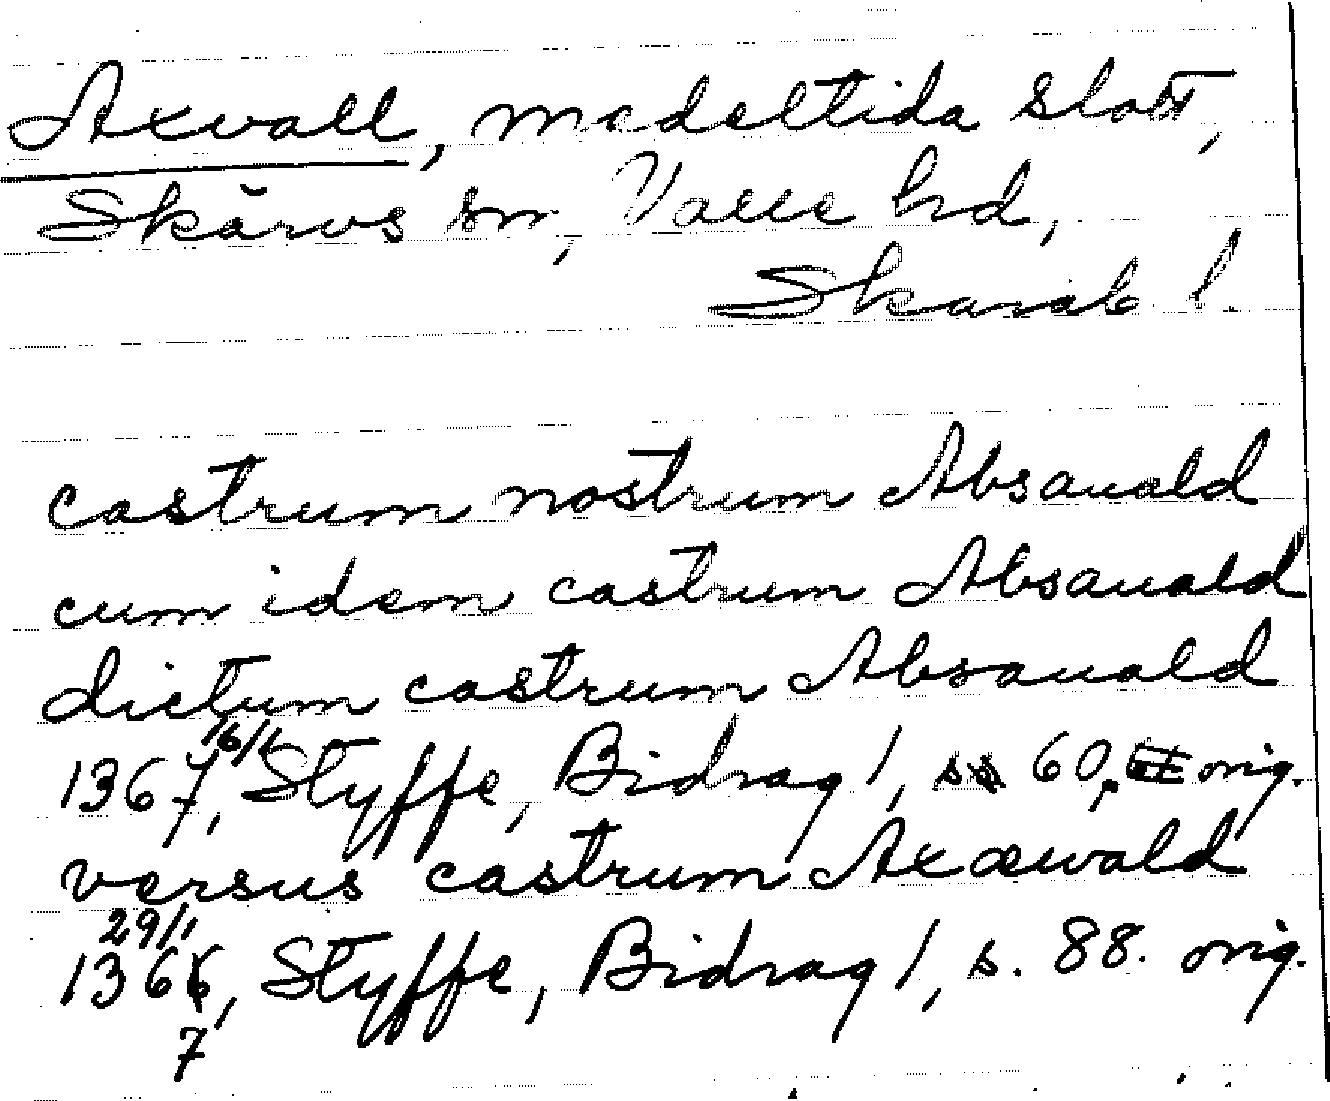 Axvall, medeltida slott,
Skärvs sn, Valle hd,
Skarab. l.
castrum nostrum Absauald
cum idem castrum Absauald
dictum castrum Absauald
16/1
1367, Styffe, Bidrag 1, s. 60, orig.
versus castrum Axæwald
29/1
1366, Styffe, Bidrag 1, s. 88. orig.
7